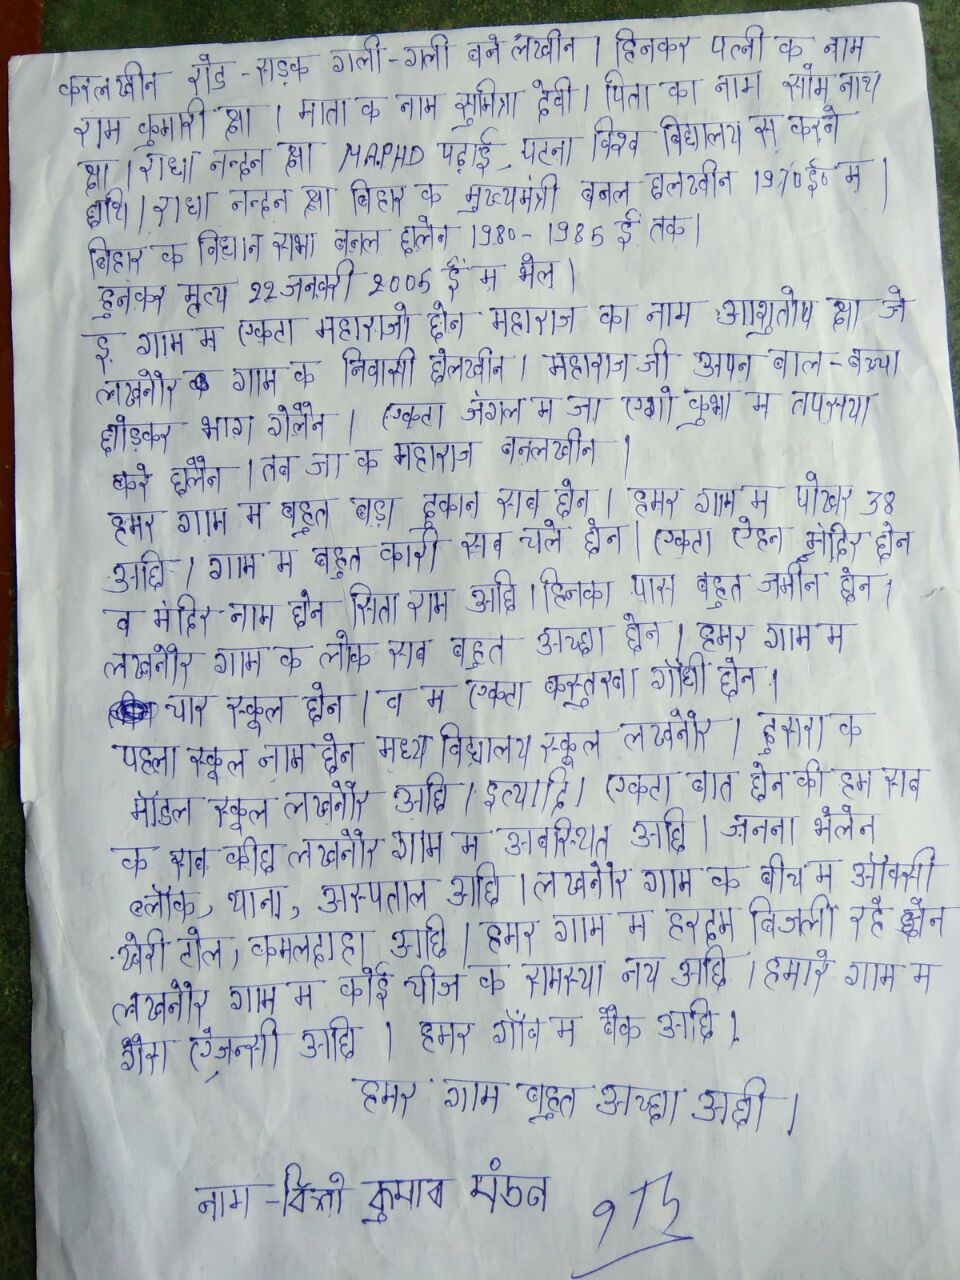 करलखीन रोड - सड़क गली - गली बनेलखीन । हिनकर पत्नी क नाम
राम कुमारी झा । माता क नाम सुमित्रा देवी । पिता का नाम सोम नाथ
झा । राधा नन्दन झा MAPHD पढ़ाई पटना विश्व विद्यालय स करने
छथि । राधा नन्दन झा बिहार क मुख्यमंत्री बनल छलखीन 1970 ई० म ।
बिहार क विधान सभा बनल छलेन 1980 - 1985 ई तक ।
हुनकर मृत्य 22 जनवरी 2005 ई म भेल ।
इ गाम म एकटा महाराजो छेन महाराज का नाम आशुतोष झा जे
लखनौर गाम क निवासी छेलखीन । महाराज जी अपन बाल - बच्चा
छोड़कर भाग गेलेन । एकटा जंगल म जा एगो कुभा म तपसया
करे छेलेन । तब जा क महाराज बनलखीन ।
हमर गाम म बहुत बड़ा दुकान सब छेन । हमर गाम म पोखर 38
अछि । गाम म बहुत कारी सब चले छेन । एकटा ऐहन मंदिर छेन
व मंदिर नाम छेन सिता राम अछि । हिनका पास बहुत जमीन छेन ।
लखनौर गाम क लोक सब बहुत अच्छा छेन । हमर गाम म
चार स्कूल छेन । व म एकटा कस्तुरबा गाँधी छेन ।
पहला स्कूल नाम छेन मध्य विद्यालय स्कूल लखनौर । दुसरा क
मॉडल स्कूल लखनौर अछि । इत्यादि । एकटा बात छेन की हम सब
क सब कीछ लखनौर गाम म अवस्थित अछि । जनना भेलेन
ब्लॉक, थाना, अस्पताल अछि । लखनौर गाम क बीच म ऑक्सी
खैरी टोल, कमलदाहा अछि । हमर गाम म हरदम बिजली रहे छेन
लखनौर गाम म कोई चीज क समस्या नय अछि । हमारे गाम म
गैस ऐजन्सी अछि । हमर गाँव म बैंक अछि ।
हमर गाम बहुत अच्छा अछी ।
नाम - कुमार मंडल